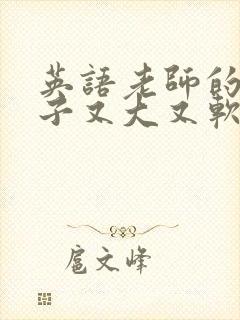 英語老師的
子又大又軟
扈文峰